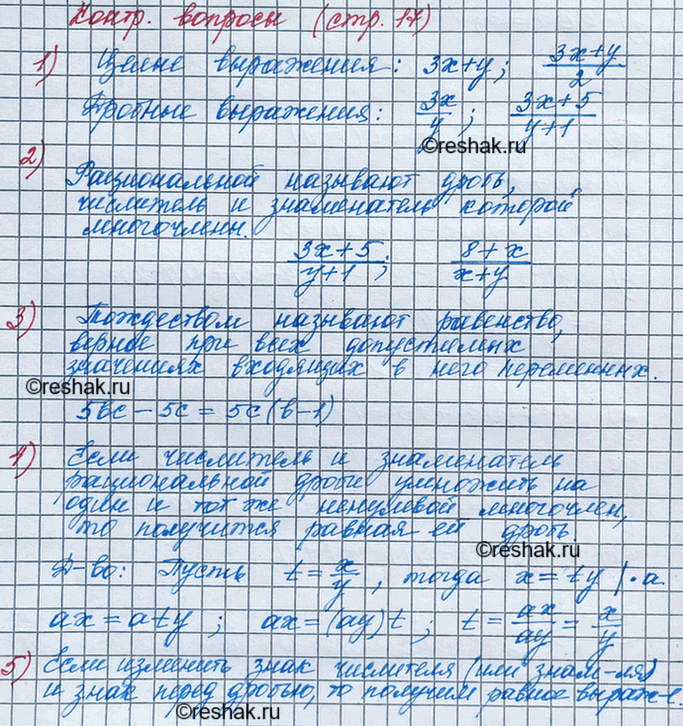 Контр. вопросы (стр. 17)
1) Целые выражения: 3x+y; (3x+y)/2
Дробные выражения: 3x/y; (3x+5)/(y+1)
©reshak.ru
2) Рациональной называют дробь,
числитель и знаменатель которой
многочлены.
(3x+5)/(y+1); (8+x)/(x+y)
3) Тождеством называют равенство,
верное при всех допустимых
значениях входящих в него переменных.
©reshak.ru
5bc – 5c = 5c(b-1)
4) Если числитель и знаменатель
рациональной дроби умножить на
один и тот же ненулевой многочлен,
то получится равная ей дробь
©reshak.ru
Д-во: Пусть t = x/y, тогда x = ty | · a
ax = aty; ax = (ay)t; t = ax/ay = x/y
5) Если изменить знак числителя (или знам-ля)
и знак перед дробью, то получим равное выраж-е.
©reshak.ru